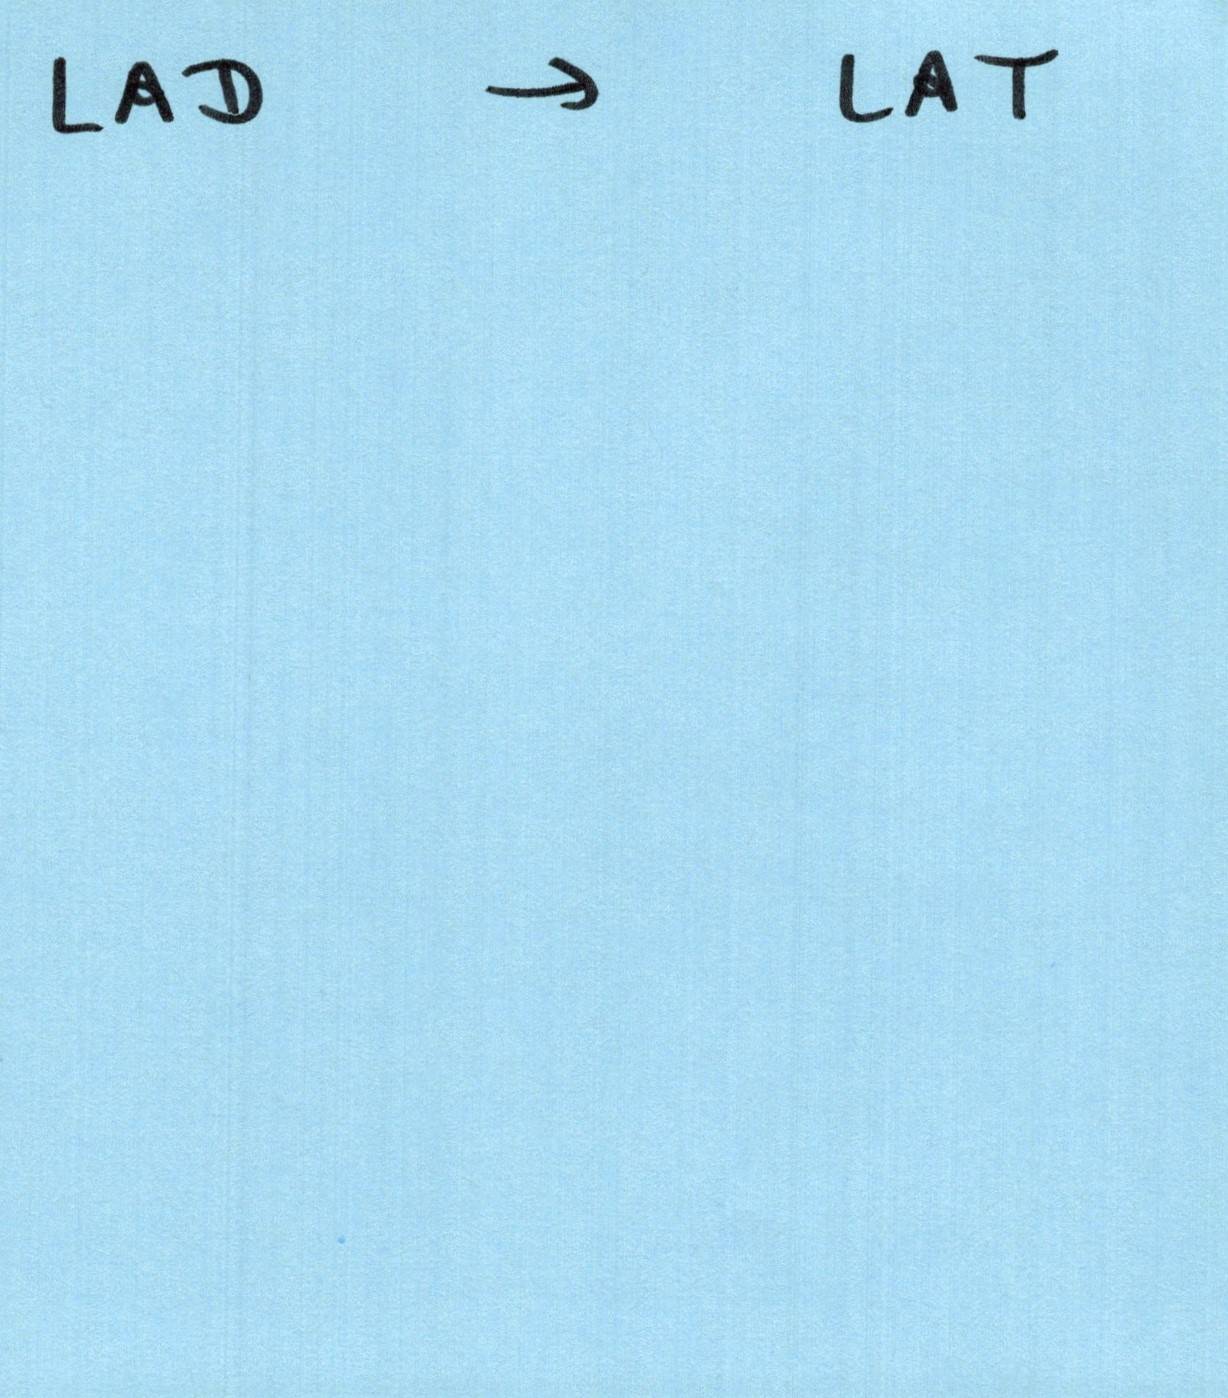 LAD → LAT